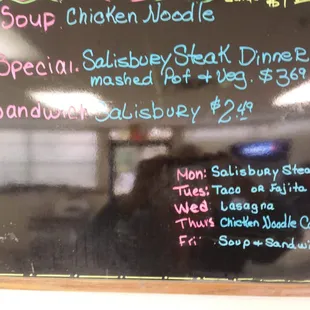 Soup. Chicken Noodle
Special. Salisbury Steak Dinner
mashed Pot & Veg. $3.69
Sandwich Salisbury $2.49
Mon: Salisbury Stea
Tues: Taco or Fajita
Wed Lasagna
Thurs Chicken Noodle Ca
Fri Soup & Sandwi